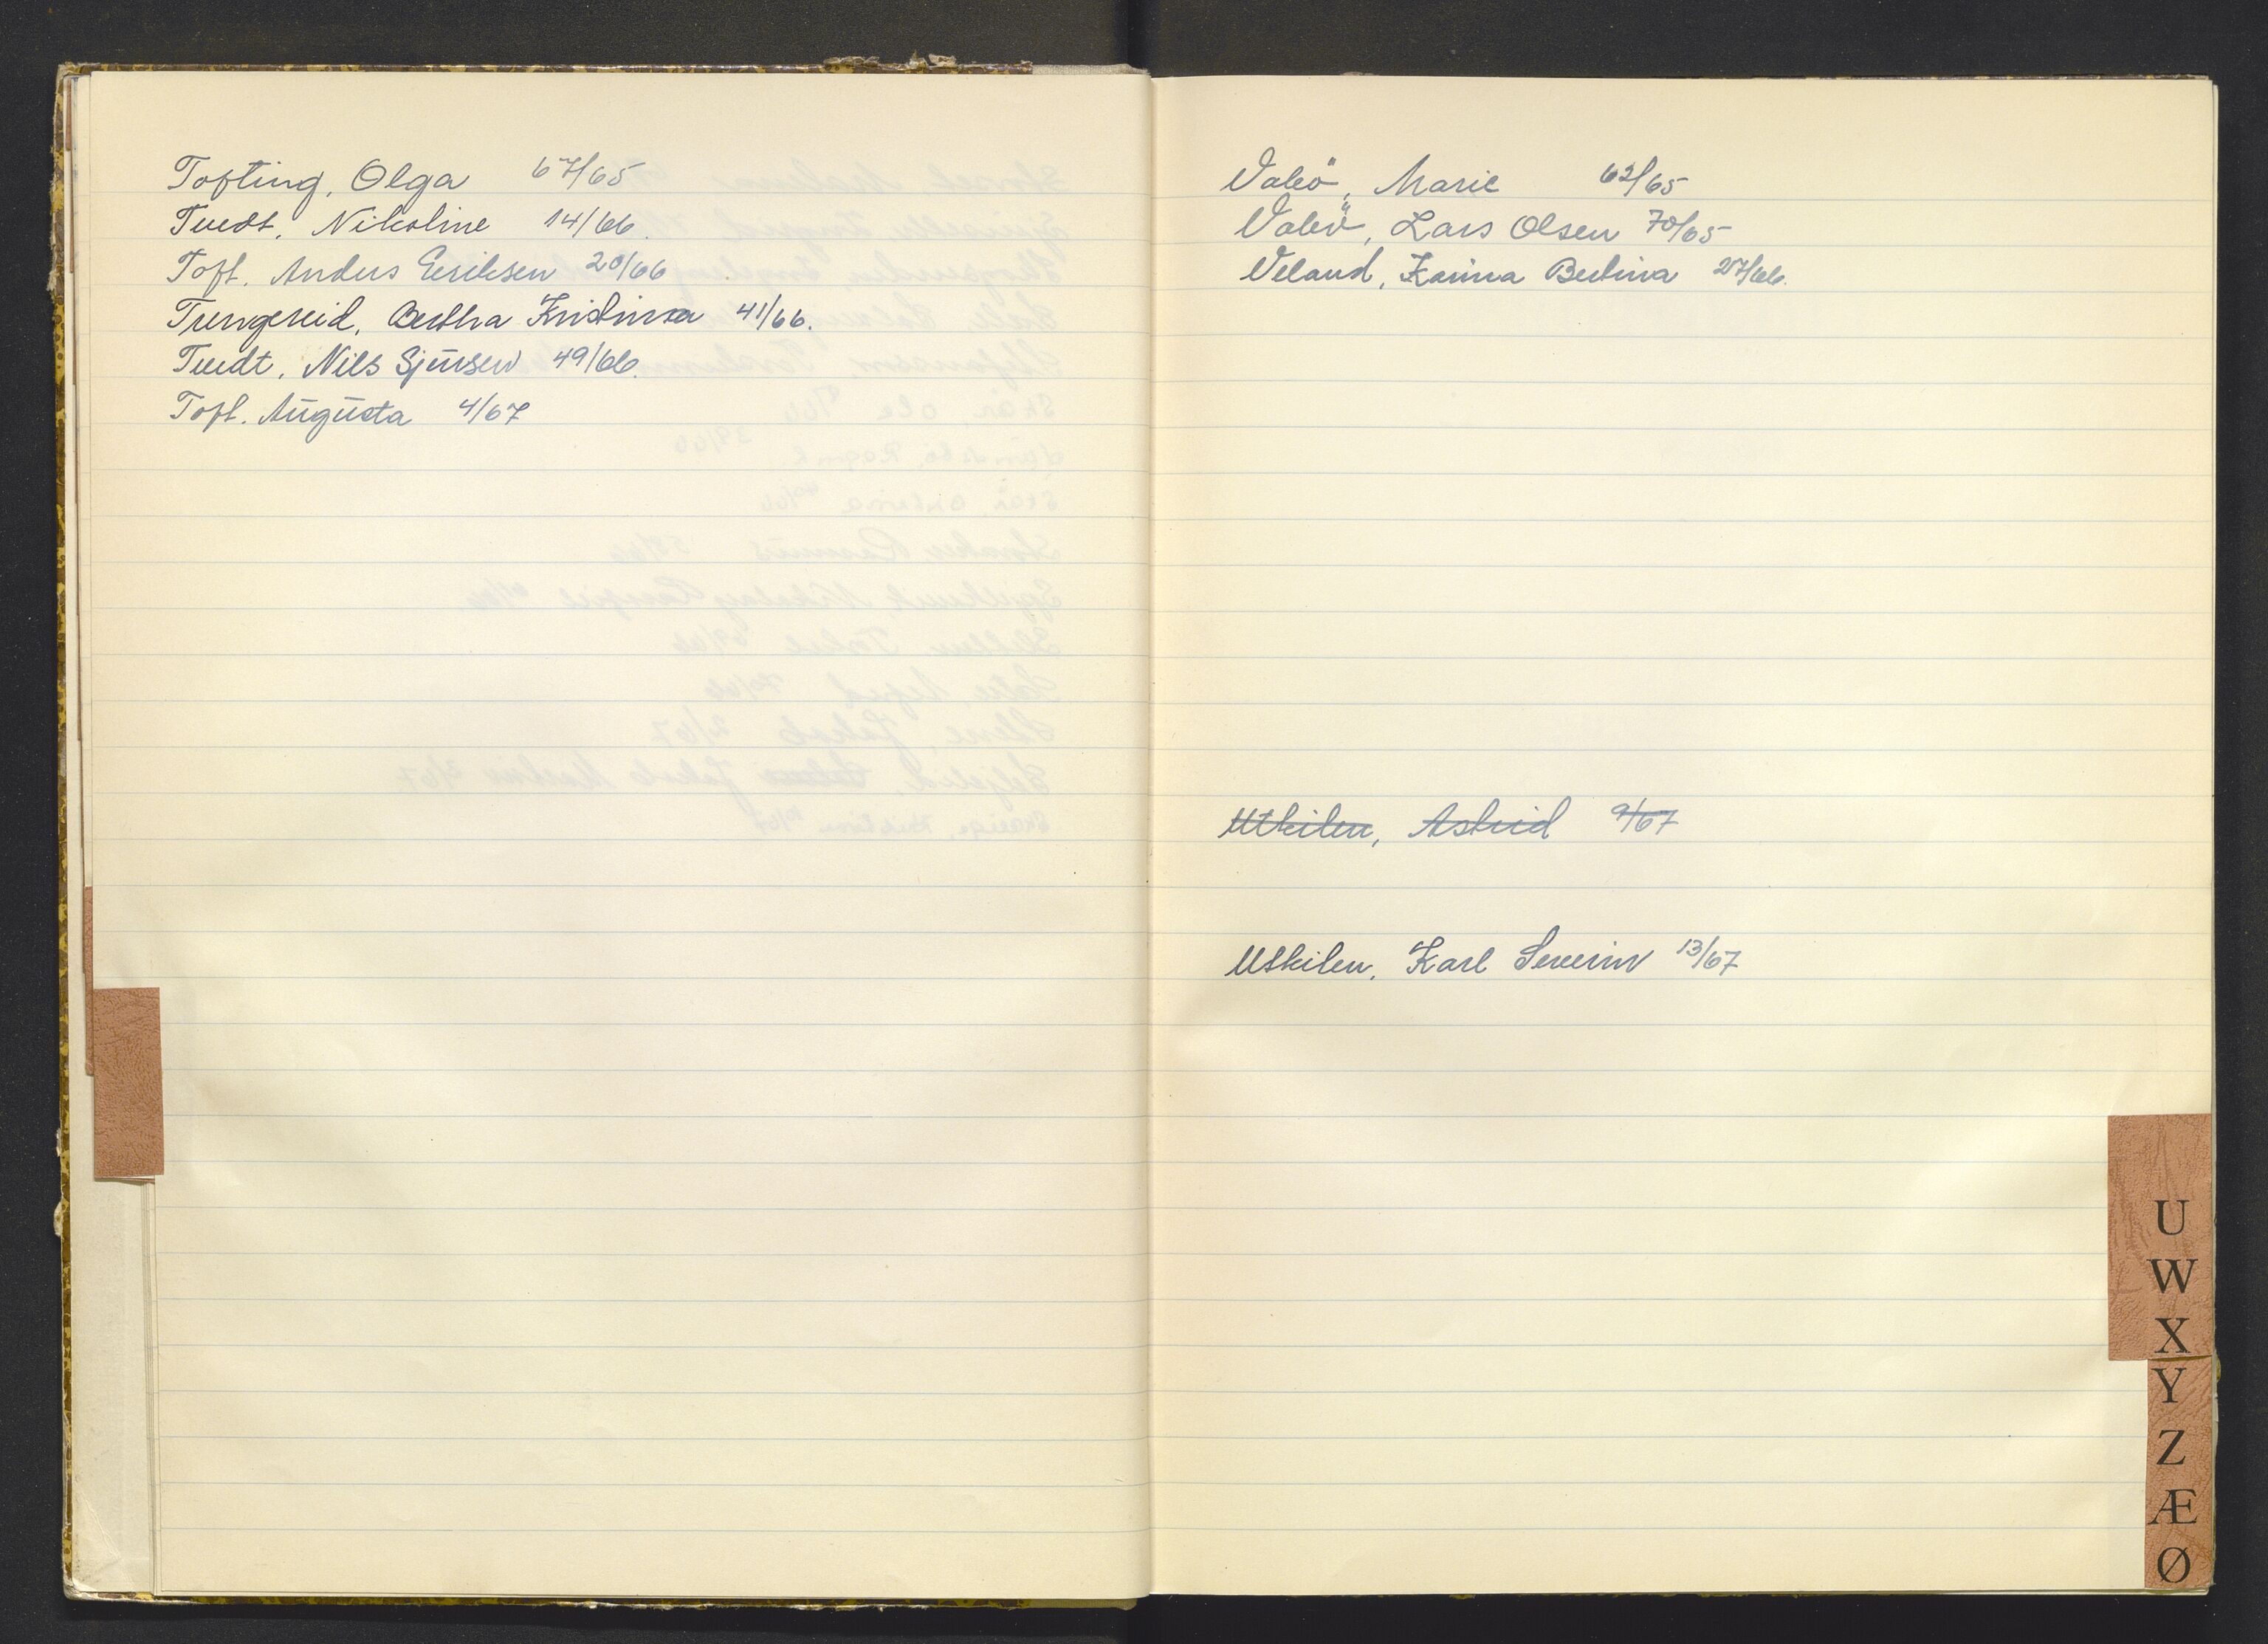 Tofting, Olga 67/65
Tvedt, Nikoline 14/66.
Toft, Anders Eeriksen 20/66
Tungeseid, Bertha Kristinna 41/66.
Tvedt, Nils Sjursen 49/66.
Toft. Augusta 4/67
Valvö, Marie 62/65
Valvö, Lars Olsen 70/65
Veland, Karina Bertina 27/66.
Utkilen, Astrid 9/67
Utkilen, Karl Severin 13/67
U
W
X
Y
Z
Æ
Ø